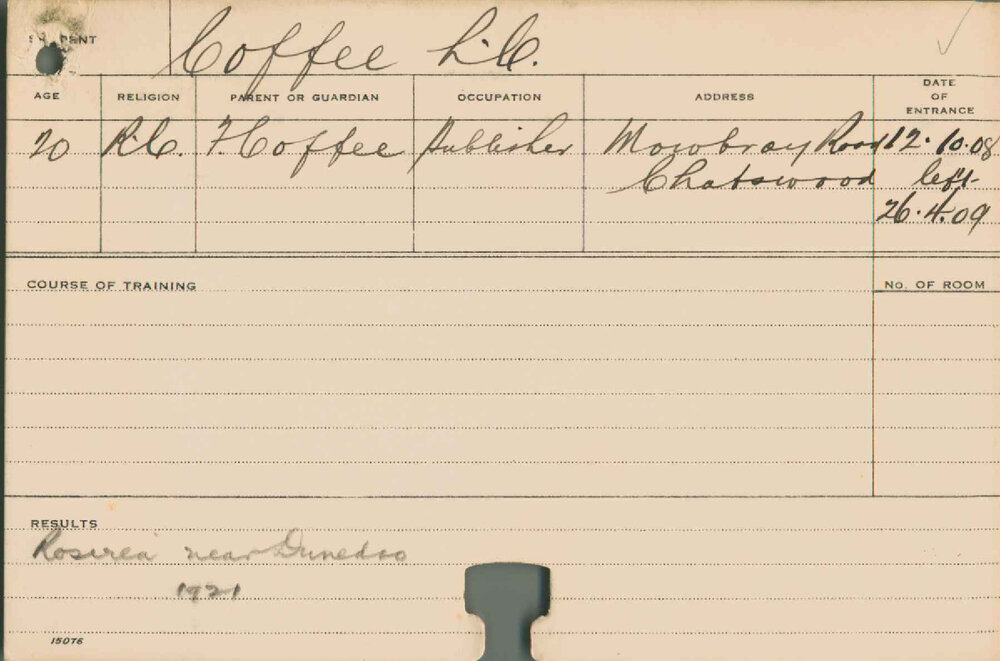 STUDENT
Coffee L.C.
AGE RELIGION PARENT OR GUARDIAN OCCUPATION ADDRESS DATE OF ENTRANCE
20 R.C. F. Coffee Publisher Mowbray Road 12.10.08
Chatswood left
26.4.09
COURSE OF TRAINING No. OF ROOM
RESULTS
near Dunedoo
1921
15076